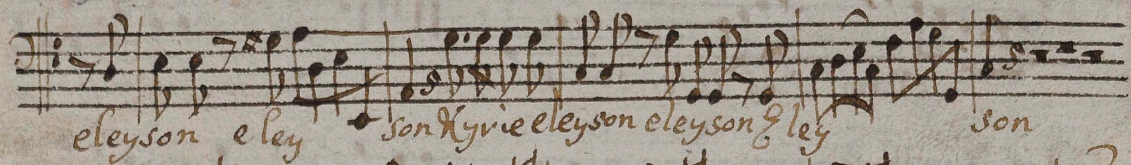 eleyson eley son Kyrie eleyson eleyson E ley son